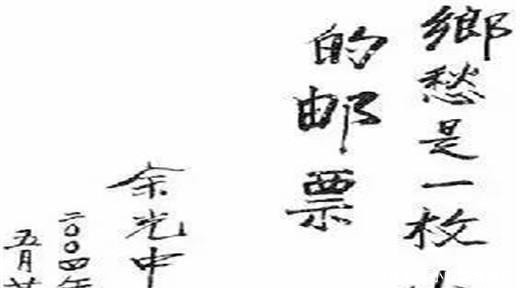 鄉愁是一枚
的邮票
余光中
二〇〇四年
五月